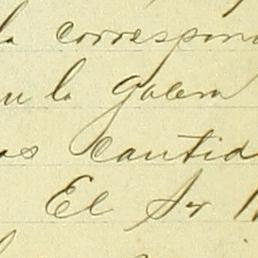 la correspon
en la galera
os cantid
El Sr